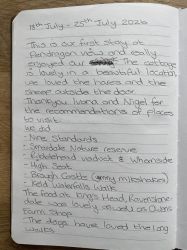 18th July - 25th July 2026
This is our first stay at
Pendragon View and really
enjoyed our The cottage
is lovely in a beautiful location
we loved the hares and the
sheep outside the door.
Thankyou Ivana and Nigel for
the recommendations of places
to visit.
We did
- Nine Standards
- Smardale Nature reserve
- Ribblehead viaduct & Whernside
- High Seat
- Brough Castle (yummy milkshakes)
- Reid Waterfalls Walk
The food at King's Head, Ravenstone-
dale was lovely as was on Owens
Farm Shop.
- The dogs have loved the long
walks.